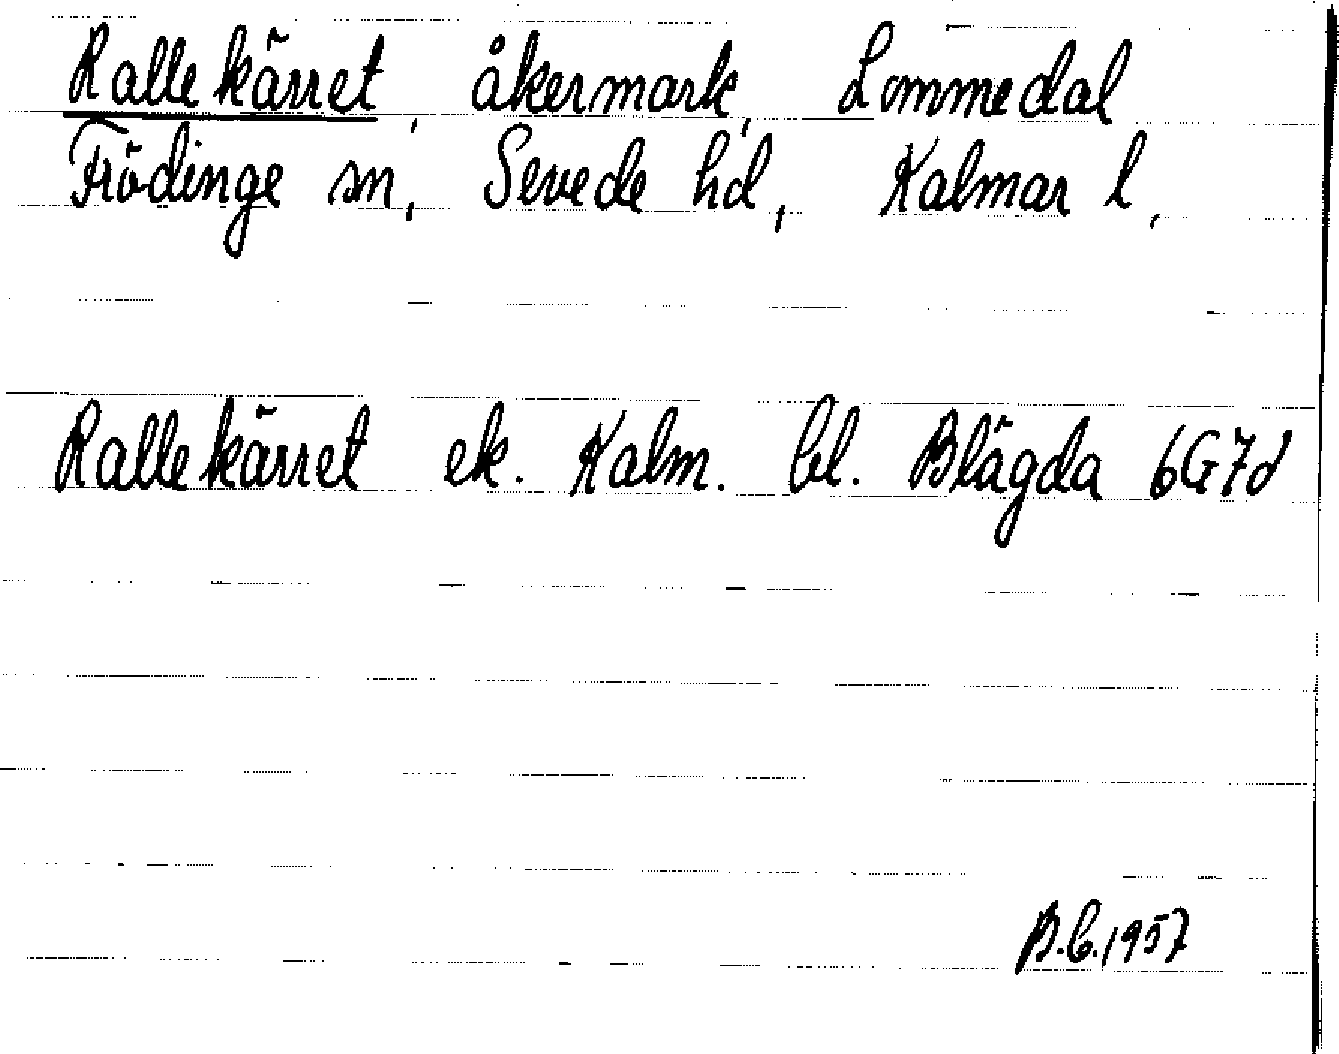 Rallekärret, åkermark, Lommedal
Frödinge sn, Sevede hd, Kalmar l,
Rallekärret ek. Kalm. bl. Blägda 6G7d
B.C. 1957